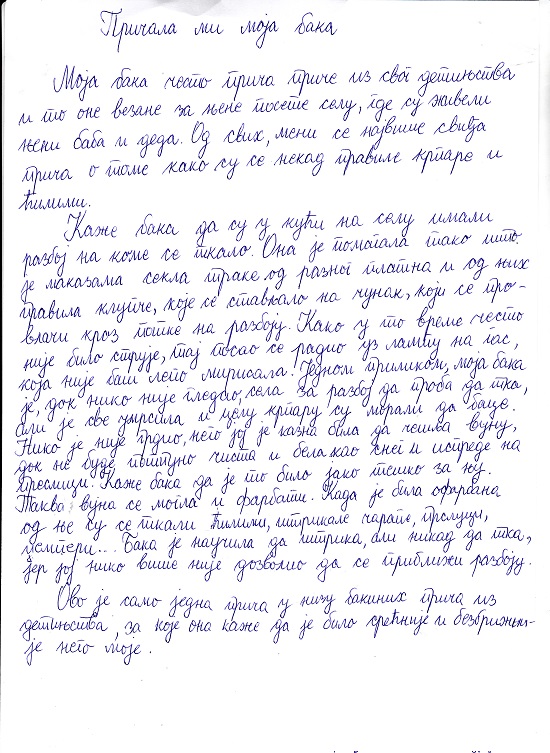 Причала ми моја бака
Моја бака често прича приче из свог детињства
и то оне везане за њене посете селу, где су живели
њени баба и деда. Од свих, мени се највише свиђа
прича о томе како су се некад правиле крпаре и
ћилими.
Каже бака да су у кући на селу имали
разбој на коме се ткало. Она је помагала тако што
је маказама секла траке од разног платна и од њих
правила клупче, које се стављало на чунак, који се про-
влачи кроз потке на разбоју. Како у то време често
није било струје, тај посао се радио уз лампу на гас,
која није баш лепо мирисала. Једном приликом, моја бака
је, док нико није гледао, села за разбој да проба да тка,
али је све умрсила и целу крпару су морали да баце.
Нико је није грдио, него јој је казна била да чешља вуну,
док не буде потпуно чиста и бела као снег и испреде на
преслици. Каже бака да је то било јако тешко за њу.
Таква вуна се могла и фарбати. Када је била офарбана
од ње су се ткали ћилими, штрикале чарапе, прслуци,
џемпери... Бака је научила да штрика, али никад да тка,
јер јој нико више није дозволио да се приближи разбоју.
Ово је само једна прича у низу бакиних прича из
детињства, за које она каже да је било срећније и безбрижни-
је него моје.